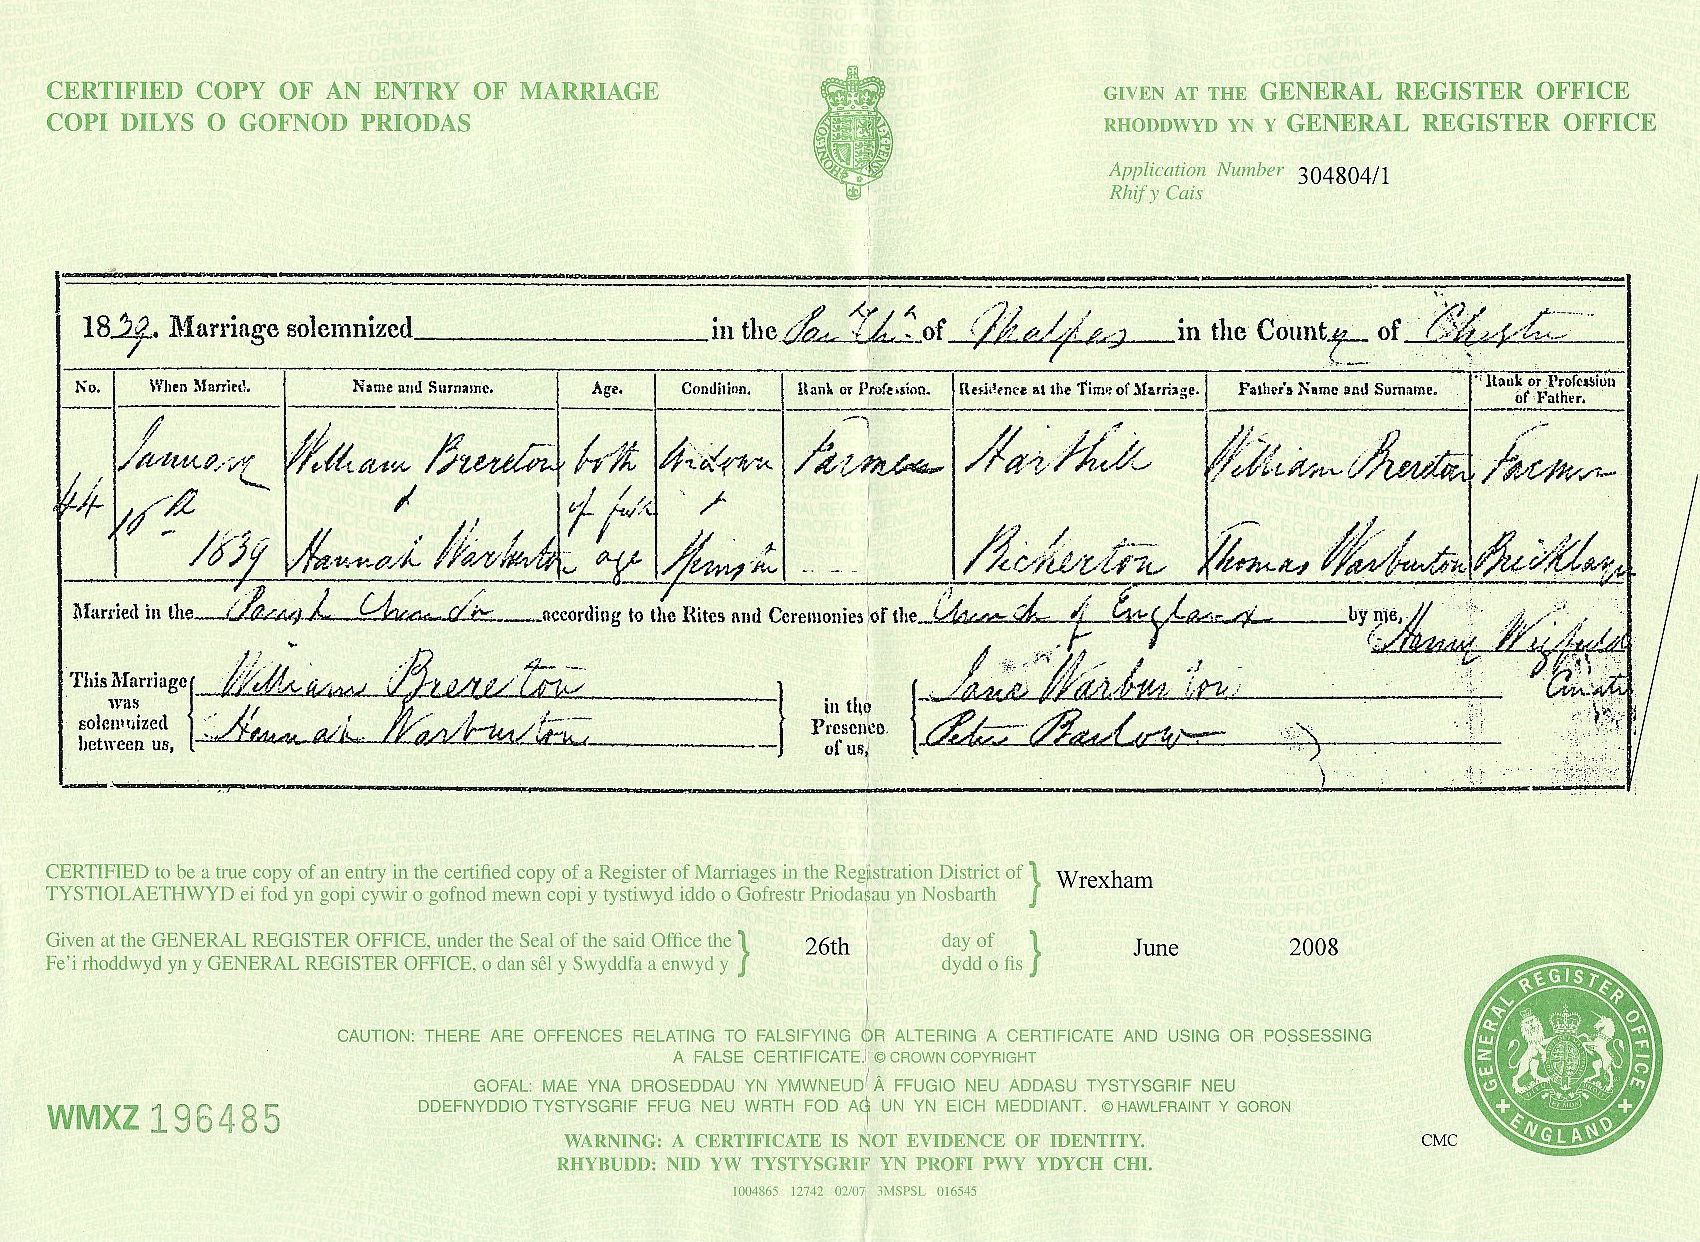 CERTIFIED COPY OF AN ENTRY OF MARRIAGE
COPI DILYS O GOFNOD PRIODAS
GIVEN AT THE GENERAL REGISTER OFFICE
RHODDWYD YN Y GENERAL REGISTER OFFICE
Application Number 304804/1
Rhif y Cais
1839. Marriage solemnized in the Par Ch of Malpas in the County of Chester
No. When Married. Name and Surname. Age. Condition. Rank or Profession. Residence at the Time of Marriage. Father's Name and Surname. Rank or Profession of Father.
January William Brereton both Widower Farmer Harthill William Brereton Farmer
44 16th & of full &
1839 Hannah Warburton age Spinster Bickerton Thomas Warburton Bricklayer
Married in the Parish Church according to the Rites and Ceremonies of the Church of England by me,
Henry Wigfield
Curate
This Marriage was solemnized between us, William Brereton in the Presence of us, Jane Warburton
Hannah Warburton Peter Barlow
CERTIFIED to be a true copy of an entry in the certified copy of a Register of Marriages in the Registration District of Wrexham
TYSTIOLAETHWYD ei fod yn gopi cywir o gofnod mewn copi y tystiwyd iddo o Gofrestr Priodasau yn Nosbarth
Given at the GENERAL REGISTER OFFICE, under the Seal of the said Office the 26th day of June 2008
Fe'i rhoddwyd yn y GENERAL REGISTER OFFICE, o dan sêl y Swyddfa a enwyd y dydd o fis
CAUTION: THERE ARE OFFENCES RELATING TO FALSIFYING OR ALTERING A CERTIFICATE AND USING OR POSSESSING
A FALSE CERTIFICATE. © CROWN COPYRIGHT
GOFAL: MAE YNA DROSEDDAU YN YMWNEUD Â FFUGIO NEU ADDASU TYSTYSGRIF NEU
DDEFNYDDIO TYSTYSGRIF FFUG NEU WRTH FOD AG UN YN EICH MEDDIANT. © HAWLFRAINT Y GORON
WMXZ 196485
WARNING: A CERTIFICATE IS NOT EVIDENCE OF IDENTITY.
RHYBUDD: NID YW TYSTYSGRIF YN PROFI PWY YDYCH CHI.
CMC
1004865 12742 02/07 3MSPSL 016545
GENERAL REGISTER OFFICE
ENGLAND